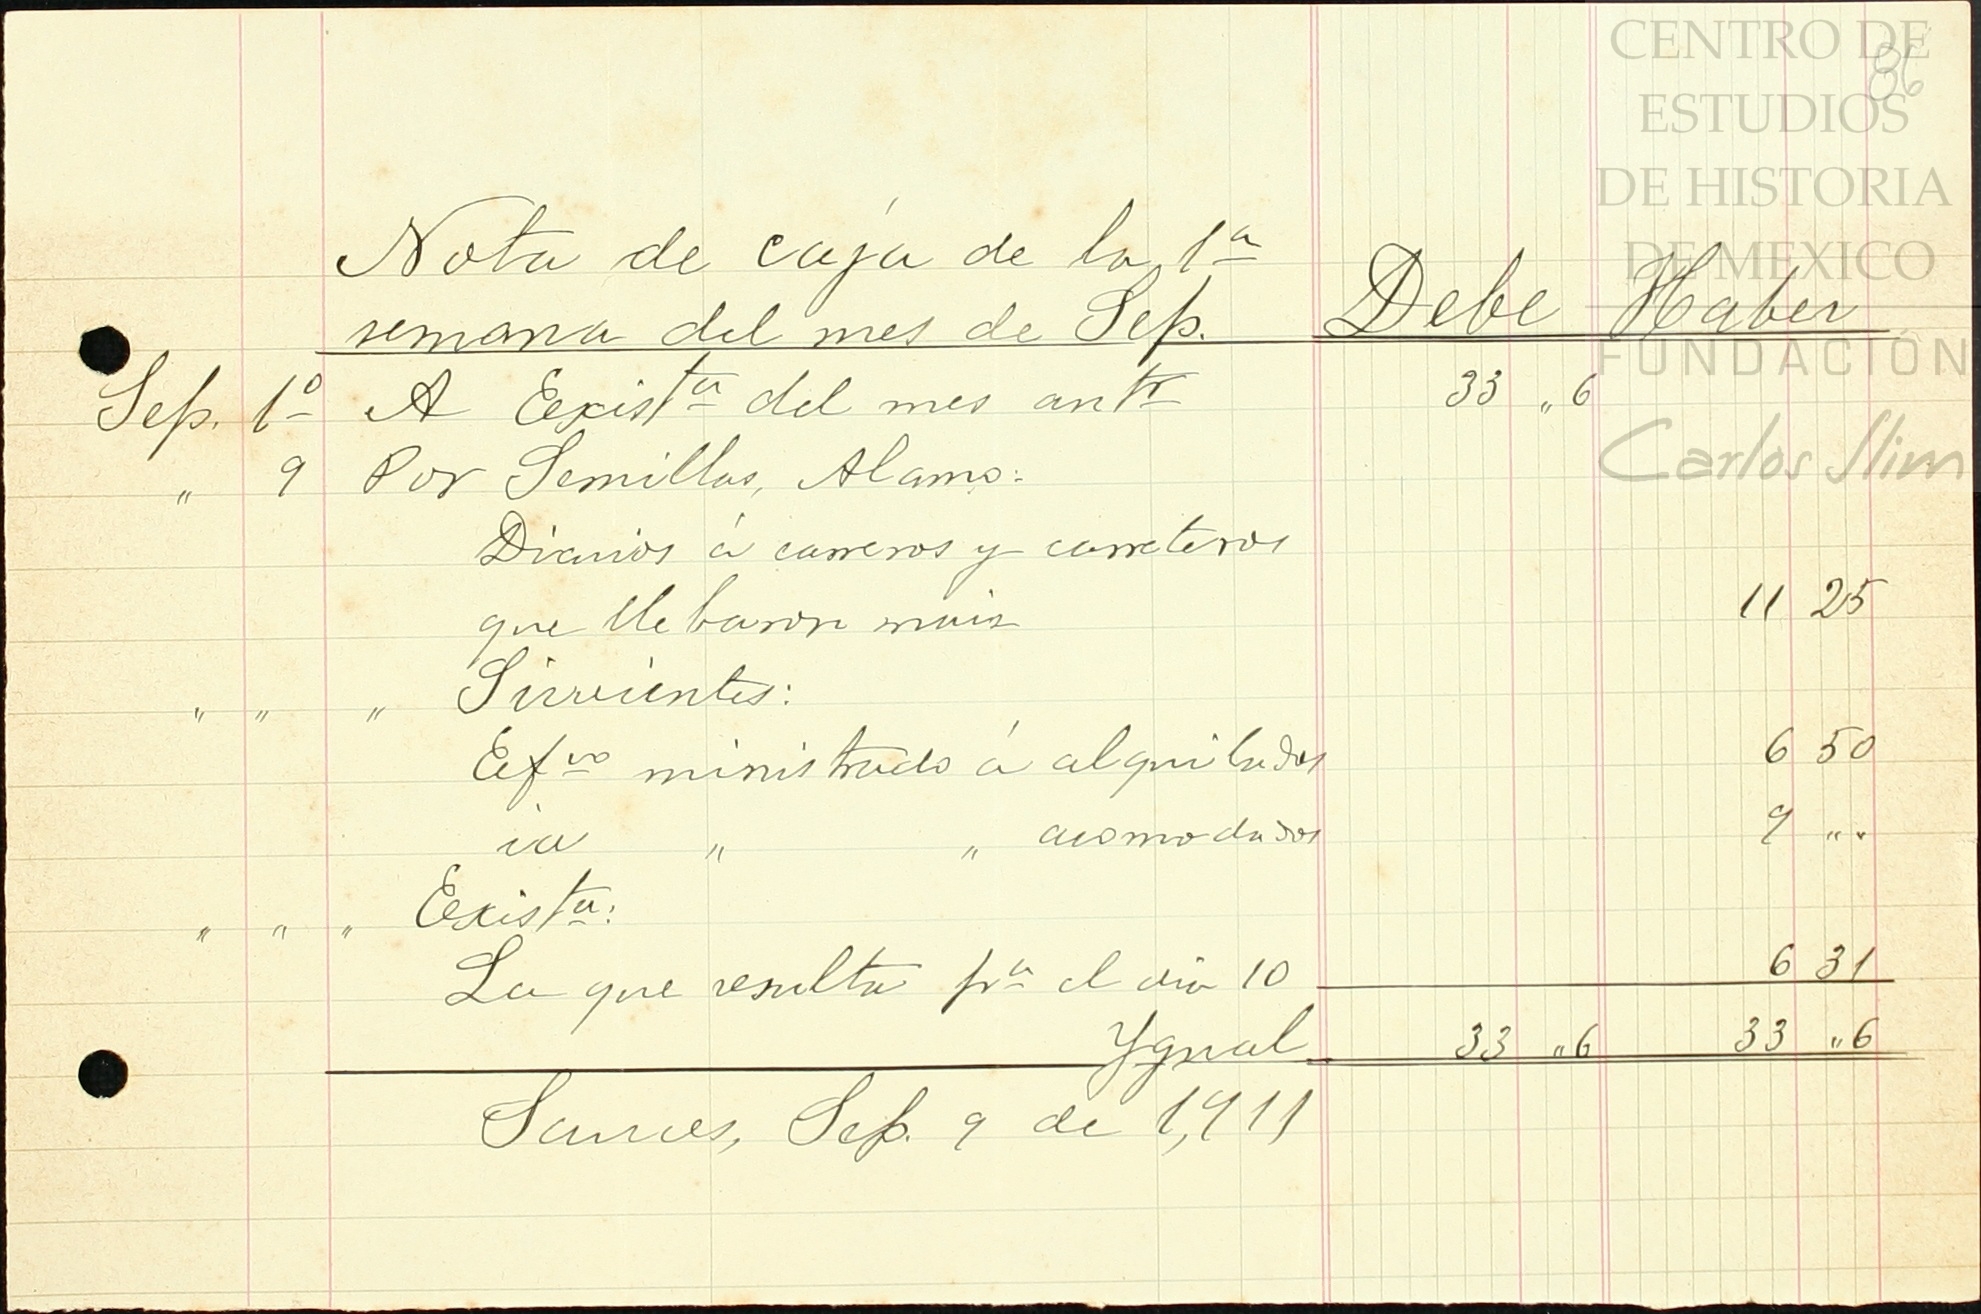 CENTRO DE
ESTUDIOS
DE HISTORIA
DE MEXICO
FUNDACIÓN
Carlos Slim
86
Nota de caja de la 1ª
semana del mes de Sep. Debe Haber
Sep. 1º A Exist.ª del mes antr 33 „6
„ 9 Por Semillas, Alamo:
Diarios á carreros y carreteros
que llebaron maiz 11 25
„ „ „ Sirvientes:
Efvo ministrado á alquilados 6 50
id „ „ acomodados 9 „„
„ „ „ Existª:
La que resulta pª el dia 10 6 31
Ygual 33 „6 33 „6
Sauces, Sep. 9 de 1,911